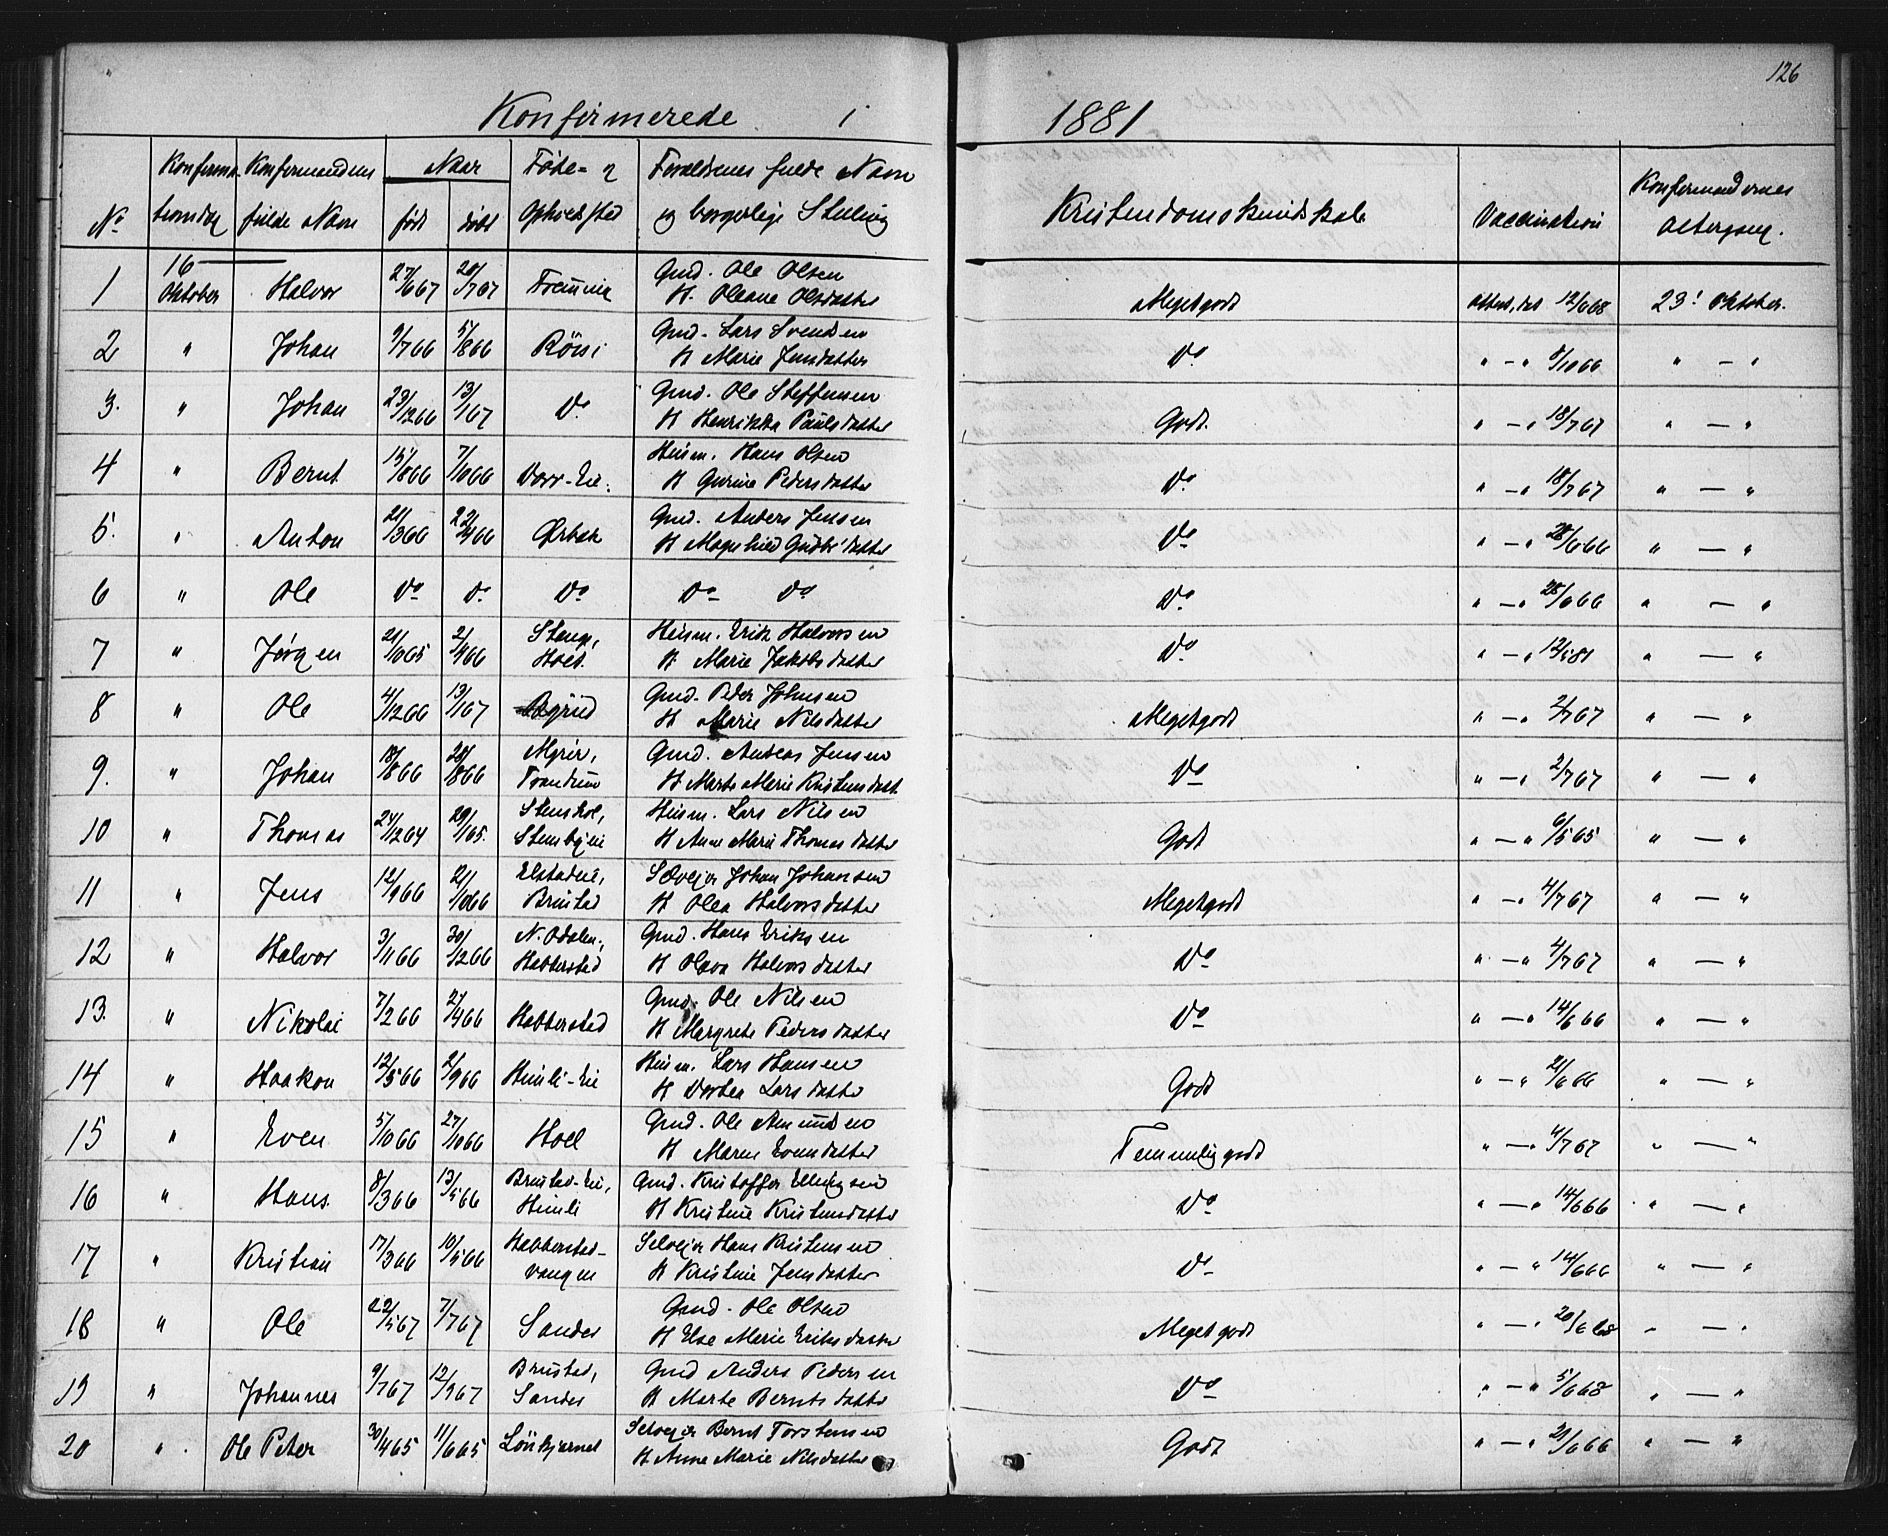 126
Konfirmerede i 1881
No Konfirmationsdag Konfirmandens fulde Navn Naar født døbt Føde- og Opholdssted Forældrenes fulde Navn og borgerlige Stilling Kristendomskundskab Vaccination Konfirmandernes Altergang.
1 16 Oktober Halvor 27/6 67 20/7 67 Gmd. Ole Olsen
H. Oleane Olsdatter Megetgodt attest, dat 12/6 68 23! Oktober.
2 " Johan 9/7 66 5/8 66 Røisi Gmd. Lars Svendsen
H Marie Jensdatter Do " — " 5/10 66 " — "
3. " Johan 23/12 66 13/1 67 Do Gmd. Ole Steffensen
H Henrikka Paulsdatter Godt. " — " 18/7 67 " — "
4 " Bernt 15/8 66 7/10 66 Dorr-Eie. Husm. Hans Olsen
H Gurine Pedersdatter Do " — " 18/7 67 " — "
5. " Anton 21/3 66 22/4 66 Ørbek Gmd. Anders Jensen
H Magnhild Gudbr'datter Do " — " 28/6 66 " — "
6 " Ole Do Do Do Do Do Do " — " 28/6 66 " — "
7 " Jørgen 21/10 65 2/4 66 Stange, Hoel. Husm. Erik Halvorsen
H. Marie Jakobsdatter Do " — " 12/5 81 " — "
8 " Ole 4/12 66 13/1 67 Gmd. Peder Johnsen
H Marie Nilsdatter Megetgodt " — " 2/7 67 " — "
9. " Johan 18/8 66 26/8 66 Myrer, Trandum Gmd. Andreas Jensen
H. Marte Marie Kristensdatt Do " — " 2/7 67 " — "
10 " Thomas 24/12 64 29/1 65. Stensbyeie Husm. Lars Nilsen
H Anne Marie Thomasdatter Godt " — " 6/5 65 " — "
11 " Jens 12/9 66 21/10 66 Elstadeie, Brustad Selveier Johan Johansen
H Olea Halvorsdatter Megetgodt " — " 4/7 67 " — "
12 " Halvor 3/11 66 30/12 66 N. Odalen, Habberstad Gmd. Hans Eriksen
H Olava Halvorsdatter Do " — " 4/7 67 " — "
13. " Nikolai 7/2 66 2/4 66 Habberstad Gmd. Ole Nilsen
H Margrete Pedersdatter Do " — " 14/6 66 " — "
14 " Haakon 12/5 66 2/9 66 Himli-Eie Husm. Lars Hansen
H Dorthea Larsdatter Godt " — " 21/6 66 " — "
15 " Even 5/10 66 27/10 66 Hoel Gmd. Ole Amundsen
H Maren Evensdatter Temmeliggodt " — " 4/7 67 " — "
16 " Hans. 8/3 66 13/5 66 Brustad-Eie, Himli Gmd. Kristoffer Ellingsen
H Kristine Kristensdatter Do " — " 14/6 66 " — "
17 " Kristian 17/3 66 10/5 66 Habberstad-vangen Selveier Hans Kristensen
H Kristine Jensdatter Do " — " 14/6 66 " — "
18 " Ole 22/5 67 7/7 67 Sander Gmd. Ole Olsen
H Else Marie Eriksdatter Megetgodt " — " 20/6 68 " — "
19 " Johannes 9/7 67 12/9 67 Brustad, Sander Gmd Anders Pedersen
H Marte Berntsdatter Do " — " 5/6 68 " — "
20 " Ole Peter 30/4 65 11/6 65 Lønkjernet Selveier Bernt Torstensen
H Anne Marie Nilsdatter Godt " — " 21/6 66 " — "